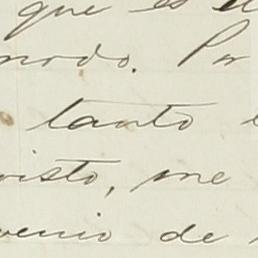 que es
modo. Por
tanto
visto, me
venio de